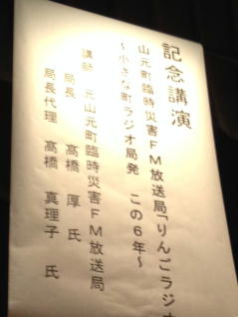 記念講演
山元町臨時災害FM放送局「りんごラジオ
～小さな町ラジオ局発 この6年～
講師 元山元町臨時災害FM放送局
局長 高橋 厚 氏
局長代理 高橋 真理子 氏